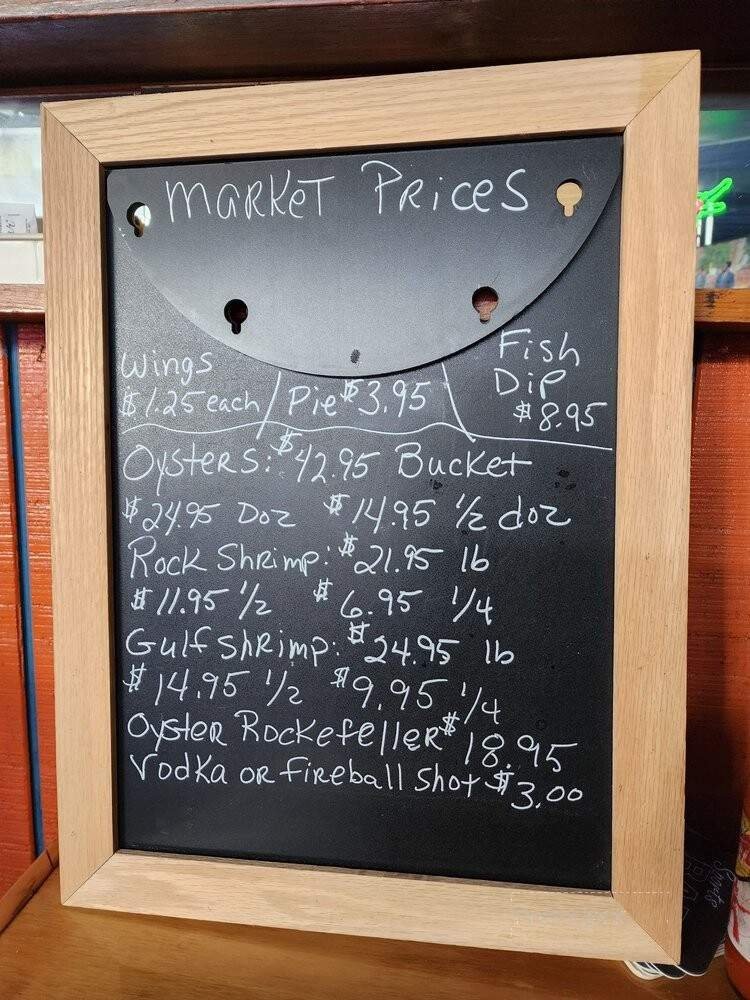 MARKET PRICES
Wings
$1.25 each
Pie $3.95
Fish
Dip
$8.95
OysteRS: $42.95 Bucket
$24.95 Doz $14.95 1/2 doz
Rock Shrimp: $21.95 lb
$11.95 1/2 $6.95 1/4
Gulf Shrimp: $24.95 lb
$14.95 1/2 $9.95 1/4
OysteR Rockefeller $18.95
Vodka or fireball shot $3.00